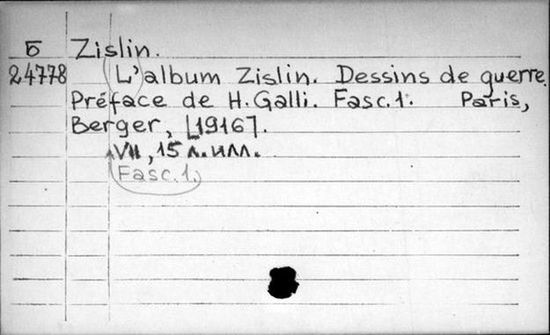 Б Zislin.
24778 L'album Zislin. Dessins de guerre.
Préface de H. Galli. Fasc. 1. Paris,
Berger, [1916].
VII, 15 л. илл.
Fasc. 1.